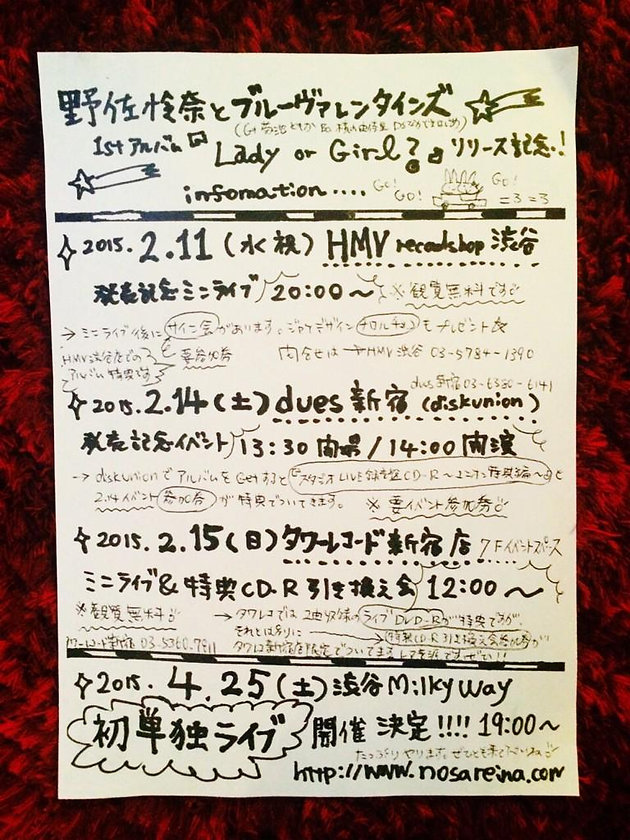 野佐怜奈とブルーヴァレンタインズ
1stアルバム Lady or Girl? リリース記念!
infomation....
GO! GO! GO!
2015.2.11(水祝) HMV recordshop 渋谷
発売記念ミニライブ 20:00〜 ※観覧無料です
→ミニライブ後にサイン会があります。ジャケデザインチロルチョコもプレゼント
HMV渋谷店での 要参加券 問合せは→HMV渋谷 03-5784-1390
アルバム特典です
dues新宿 03-6380-6141
2015.2.14(土) dues新宿 (diskunion)
発売記念イベント 13:30開場/14:00開演
→diskunionでアルバムをGetするとスタジオLIVE録音盤CD-R〜ユニオン特典編〜と
2.14イベント参加券が特典でついてきます。 ※要イベント参加券
2015.2.15(日) タワーレコード新宿店 7Fイベントスペース
ミニライブ&特典CD-R引き換え会 12:00〜
※観覧無料 →タワレコでは2曲収録のライブDVD-Rが特典ですが、
それとは別に→特典CD-R引き換え会参加券が
タワーレコード新宿 03-5360-7811 タワレコ新宿店限定でついてきます
2015.4.25(土) 渋谷Milkyway
初単独ライブ 開催決定!!!! 19:00〜
たっぷりやります。ぜひとも来てくださいね
http://www.nosareina.com